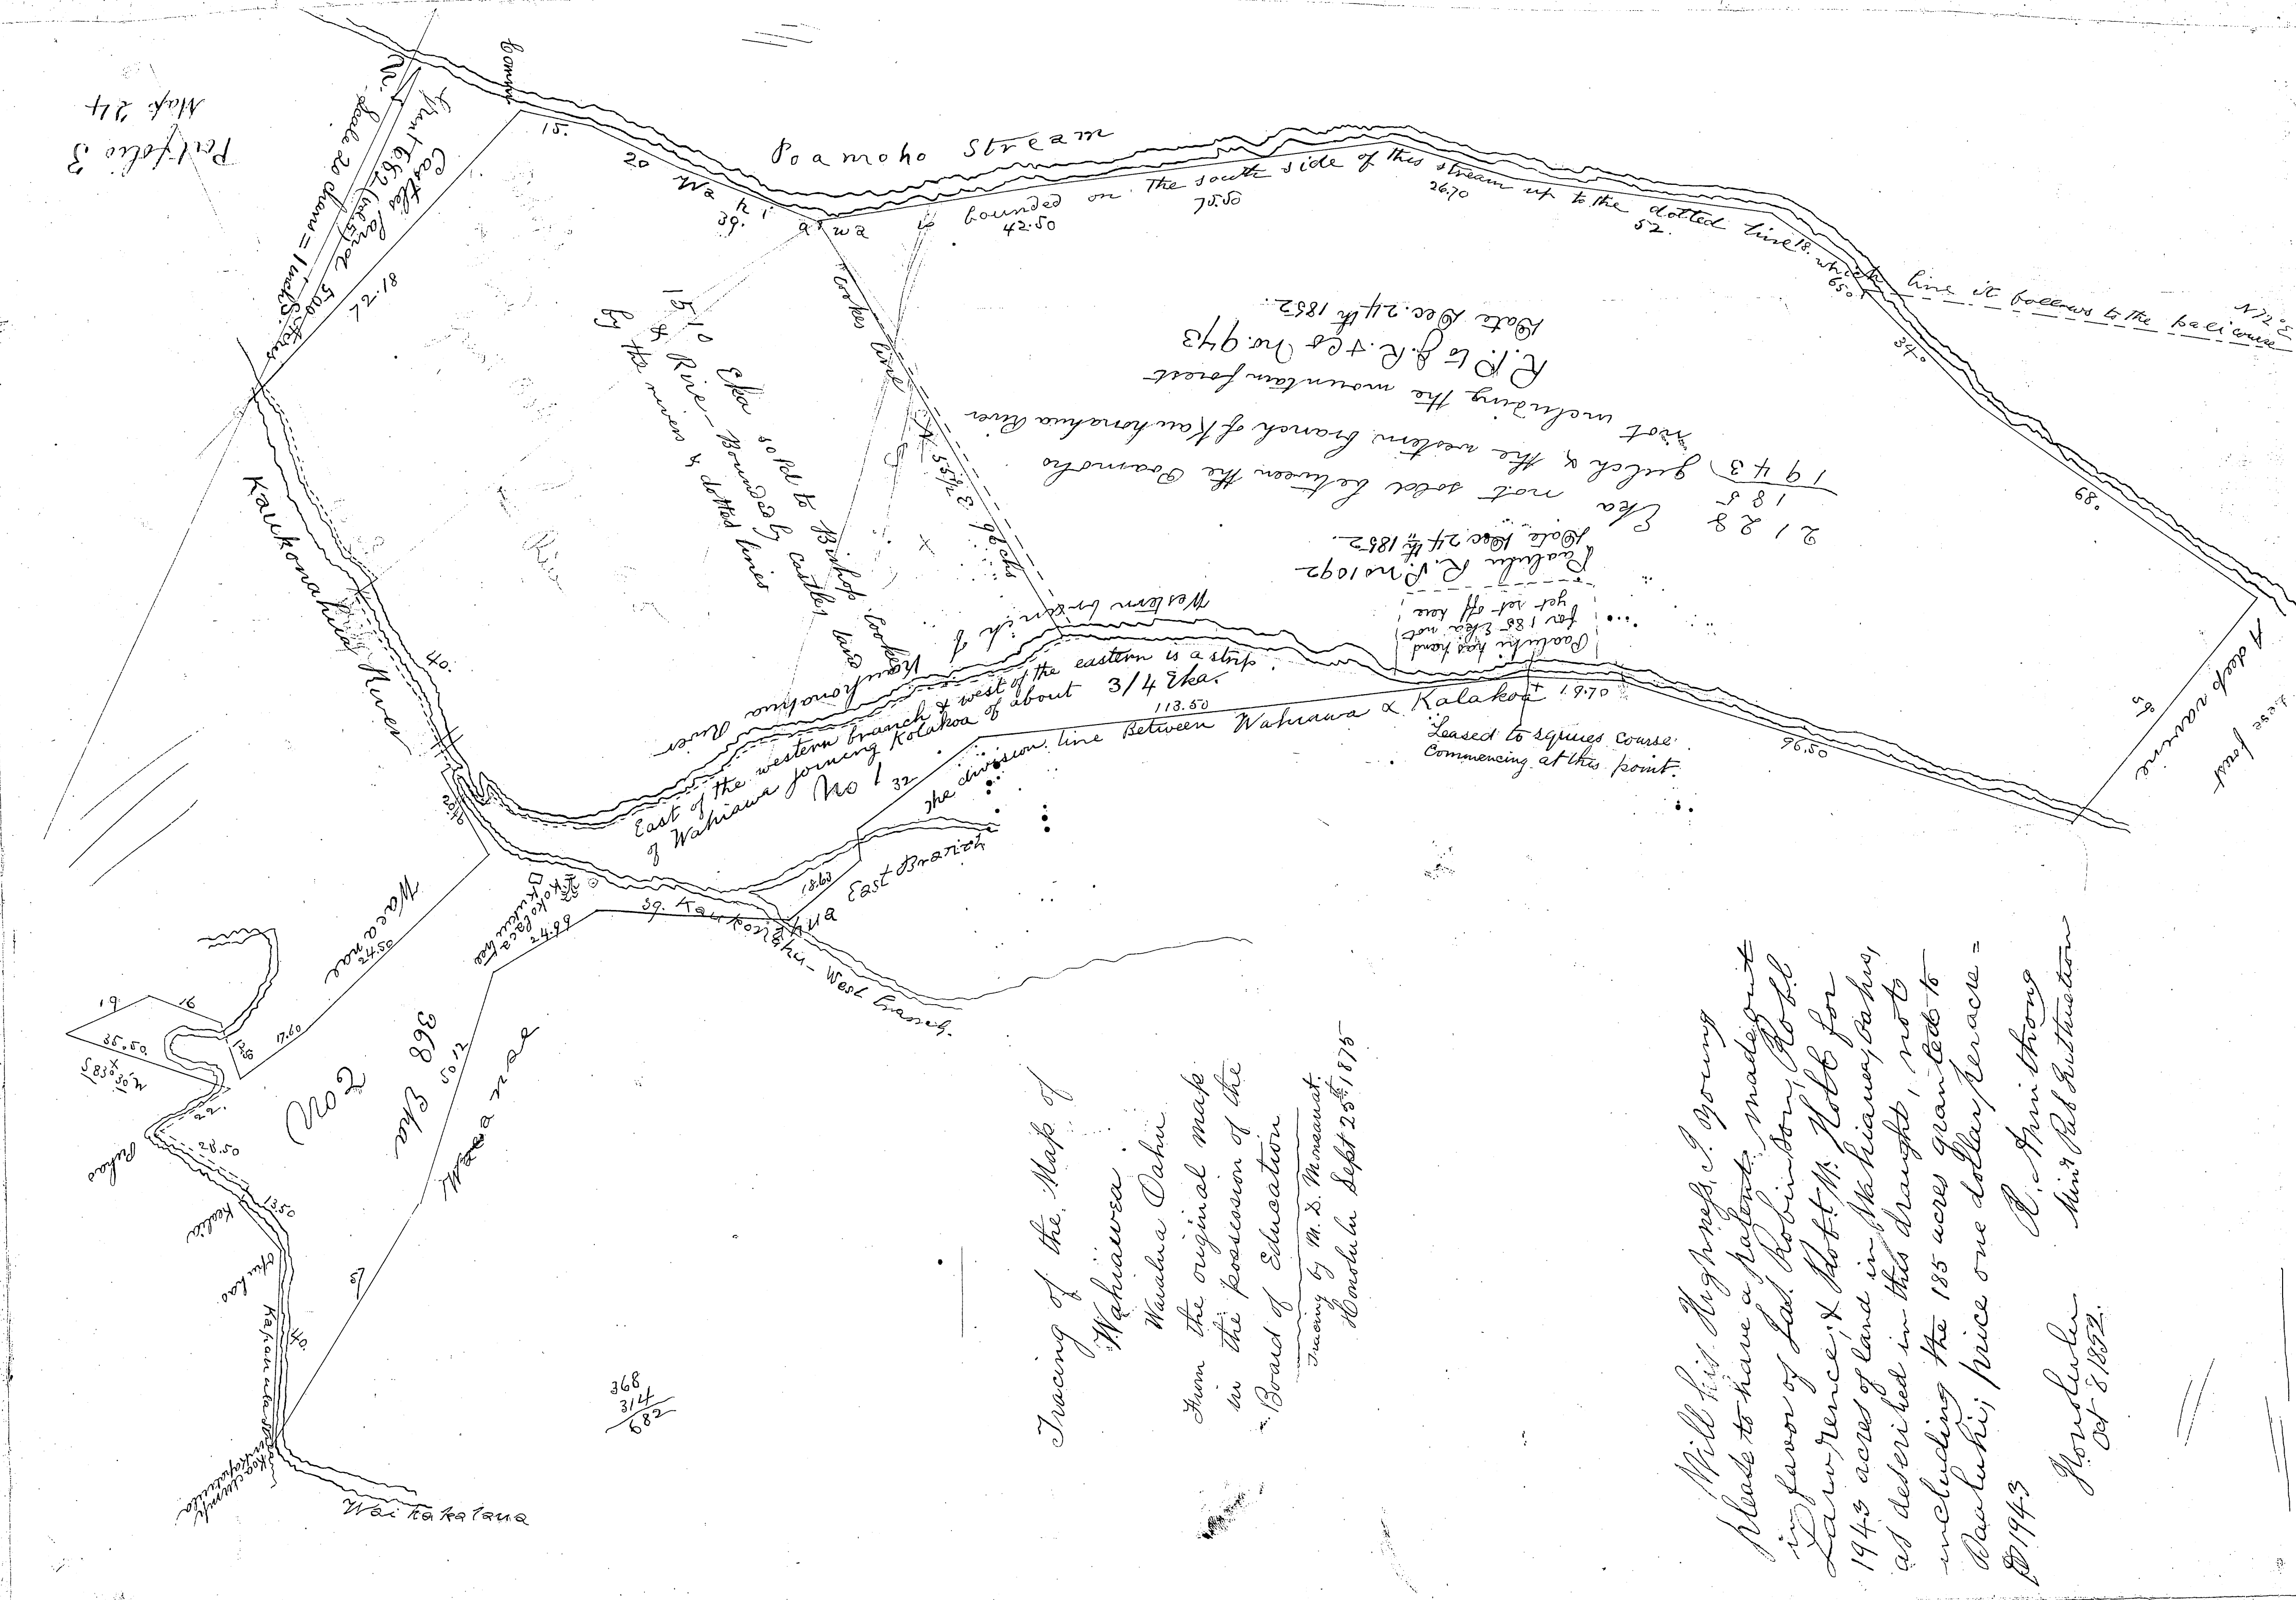 Portfolio 3
Map 24
Corner
Scale 20 chains = 1 inch
Grant 682 (vol. 5)
Castles land
500 Acres
72.18
15.
20
39.
Poamoho Stream
Wahiawa is bounded on the south side of this stream up to the dotted line which line it follows to the pali course
N 72° E
42.50
75.50
26.70
52.
18.
65.
34.
89.
A deep ravine
Cookes line
1510 Eka sold to Bishop Cooke
& Rice - Bounded by castles land
by the rivers & dotted lines
2128 Eka not sold between the Poamoho
185
1943 gulch & the western branch of Kaukonahua River
not including the mountain forest
R.P. to J.R. & Co No. 943
Date Dec. 24th 1852.
Paaluhi has hand
for 185 Eka not
yet set off here
Paaluhi R.P. no 1092
Date Dec 24th 1852.
Western branch of Kaukonahua River
Kaukonahua River
40.
East of the western branch & west of the eastern is a strip
of Wahiawa joining Kolakoa of about 3/4 Eka.
No 1
32
113.50
The division line Between Wahiawa & Kalakoa
19.70
Leased to squires course
Commencing at this point.
96.50
18.60
East Branch
39.
West Branch
24.99
Waeanae
74.50
17.60
19.
16
35.50
S 83° 30' W
22.
28.50
Pehao
13.50
Kealia
40
No 2
368 Eka
50.12
Waeanae
Waikakalaua
368
314
682
Tracing of the Map of
Wahiawa
Waialua Oahu
From the original map
in the possession of the
Board of Education
Tracing by M. D. Monsarrat.
Honolulu Sept 25th 1875
Will his Highness, J. Young
please to have a patent made out
in favor of Jas. Robinson, Robt.
Lawrence, & Robt. W. Holt for
1943 acres of land in Wahiawa, Oahu,
as described in this draught, not
including the 185 acres granted to
Paaluhi; price one dollar per acre =
$1943
R. Armstrong
Min. Pub. Instruction
Honolulu
Oct 8 1852.